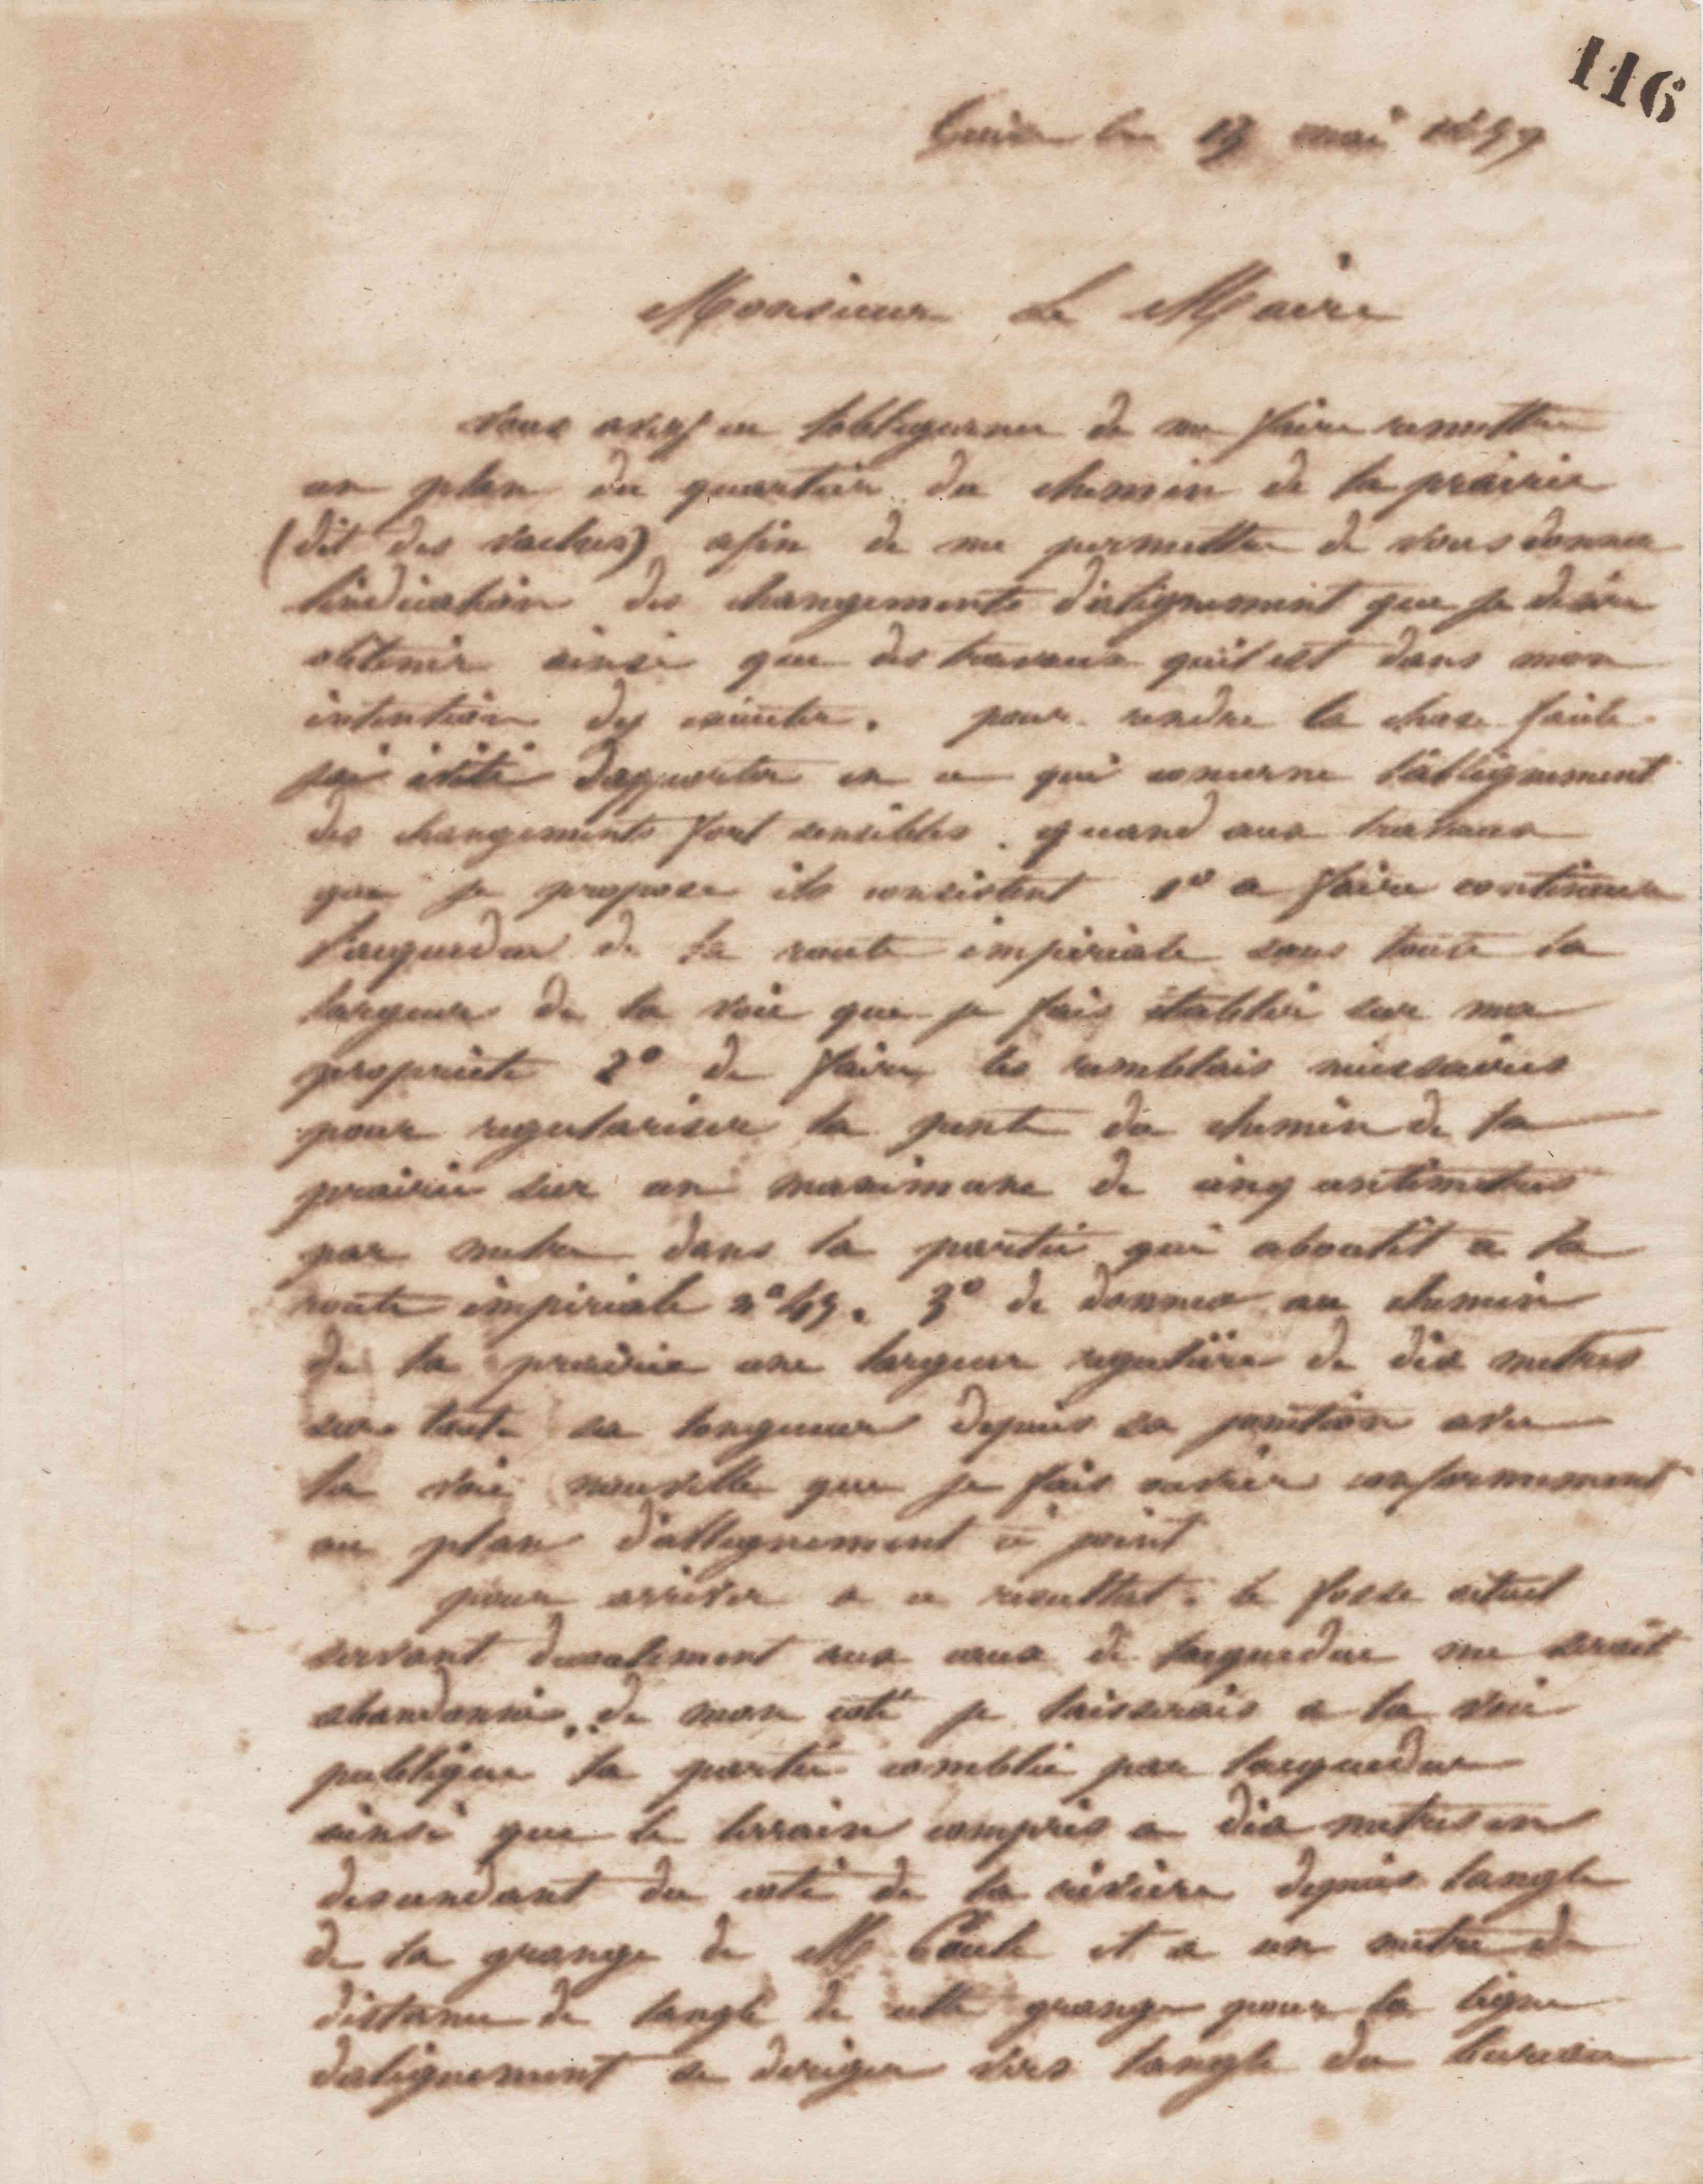 116
Guise le 19 mai 18
Monsieur Le Maire
Vous avez eu lobligeance de me faire remettre
un plan du quartier du chemin de la prairie
(dit des vaches) afin de me permettre de vous donner
lindication des changements dalignement que je desire
obtenir ainsi que des travaux quil est dans mon
intention dy executer. pour rendre la chose facile
jai évité dapporter en ce qui concerne lallignement
des changements fort sensibles. quand aux travaux
que je propose ils consistent 1º a faire continuer
laqueduc de la route impériale sous toute la
largeur de la voie que je fais établir sur ma
propriete 2º de faire les remblais nécessaires
pour regulariser la pente du chemin de la
prairie sur un maximum de cinq centimetres
par metre dans la partie qui aboutit a la
route impériale nº 45. 3º de donner au chemin
de la prairie une largeur regulière de dix metres
sur toute sa longueur depuis sa jonction avec
la voie nouvelle que je fais ouvrir conformement
au plan dallignement ci joint
pour arriver a ce resultat. le fosse actuel
servant decoulement aux eaux de laqueduc me serait
abandonné. de mon coté je laisserais a la voie
publique la partie comblée par laqueduc
ainsi que le terrain compris a dix metres en
descendant du coté de la rivière depuis langle
de la grange de M et a un metre de
distance de langle de cette grange pour la ligne
dalignement se diriger vers langle du bureau